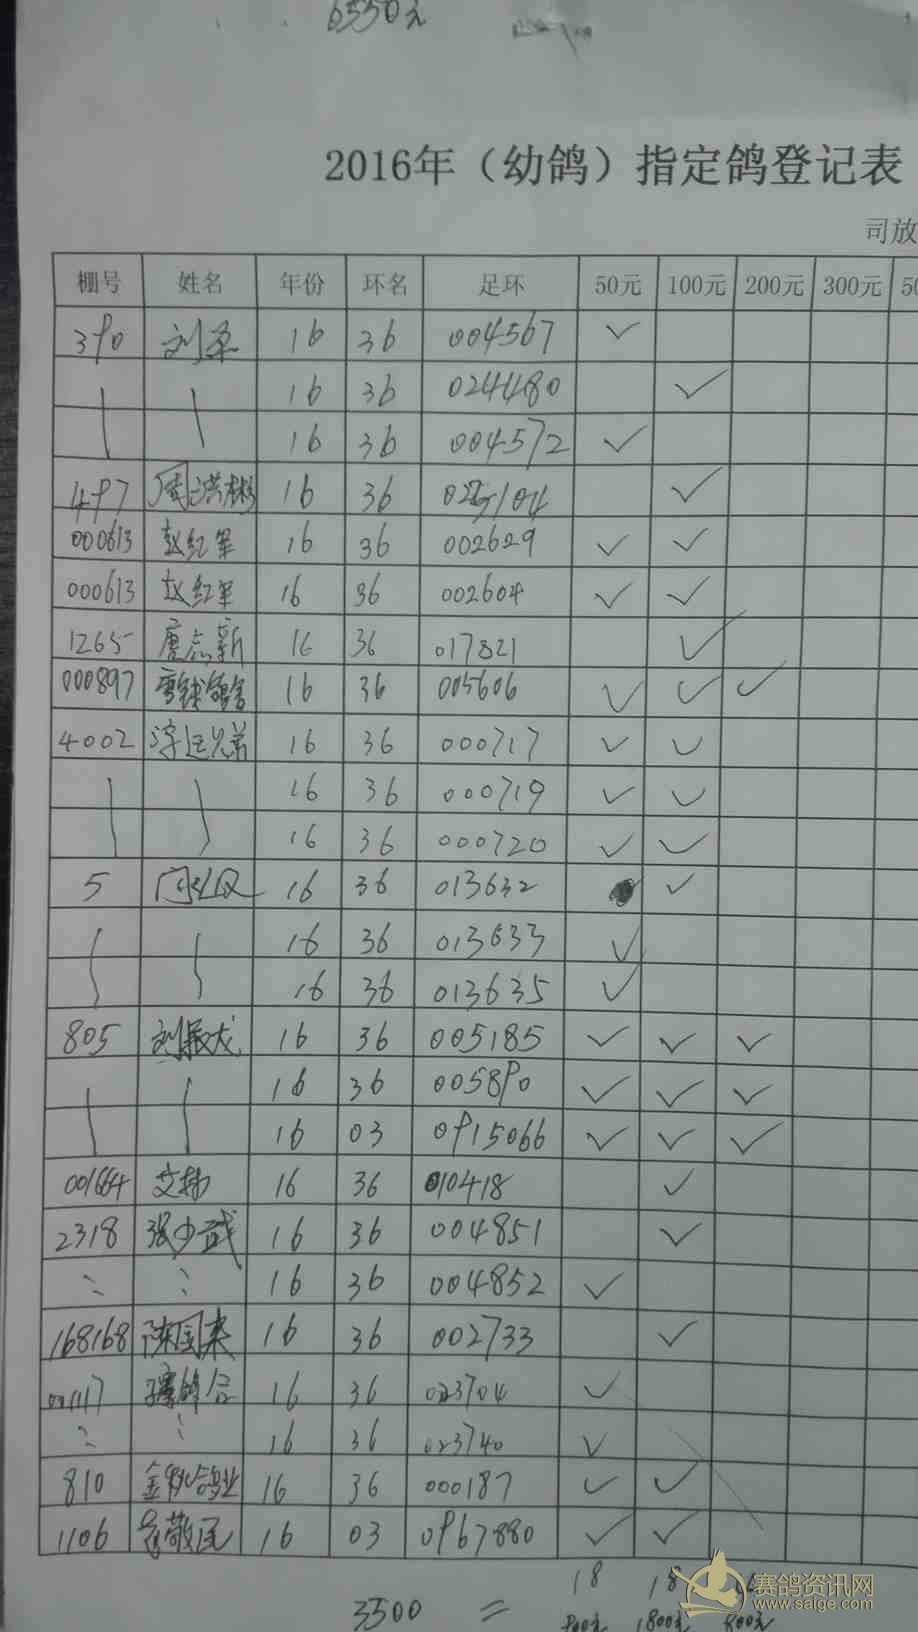 6550元
2016年（幼鸽）指定鸽登记表
司放
棚号 姓名 年份 环名 足环 50元 100元 200元 300元 50
390 刘 16 36 004567 ✓
16 36 024480 ✓
16 36 004572 ✓
497 周洪彬 16 36 ✓
000613 赵红军 16 36 002629 ✓ ✓
000613 赵红军 16 36 002604 ✓ ✓
1265 唐志新 16 36 017821 ✓
000897 16 36 005606 ✓ ✓ ✓
4002 兄弟 16 36 000717 ✓ ✓
16 36 000719 ✓ ✓
16 36 000720 ✓ ✓
5 16 36 013632 ✓
16 36 013633 ✓
16 36 013635 ✓
805 刘振龙 16 36 005185 ✓ ✓ ✓
16 36 005890 ✓ ✓ ✓
16 03 0915066 ✓ ✓ ✓
艾扬 16 36 010418 ✓
2318 张少武 16 36 004851 ✓
16 36 004852 ✓
168168 陈国来 16 36 002733 ✓
16 36 023704 ✓
16 36 023740 ✓
810 鸽业 16 36 000187 ✓ ✓
1106 敬 16 03 0967880 ✓ ✓
18 18
3500 = 900元 1800元 800元
赛鸽资讯网
www.saige.com